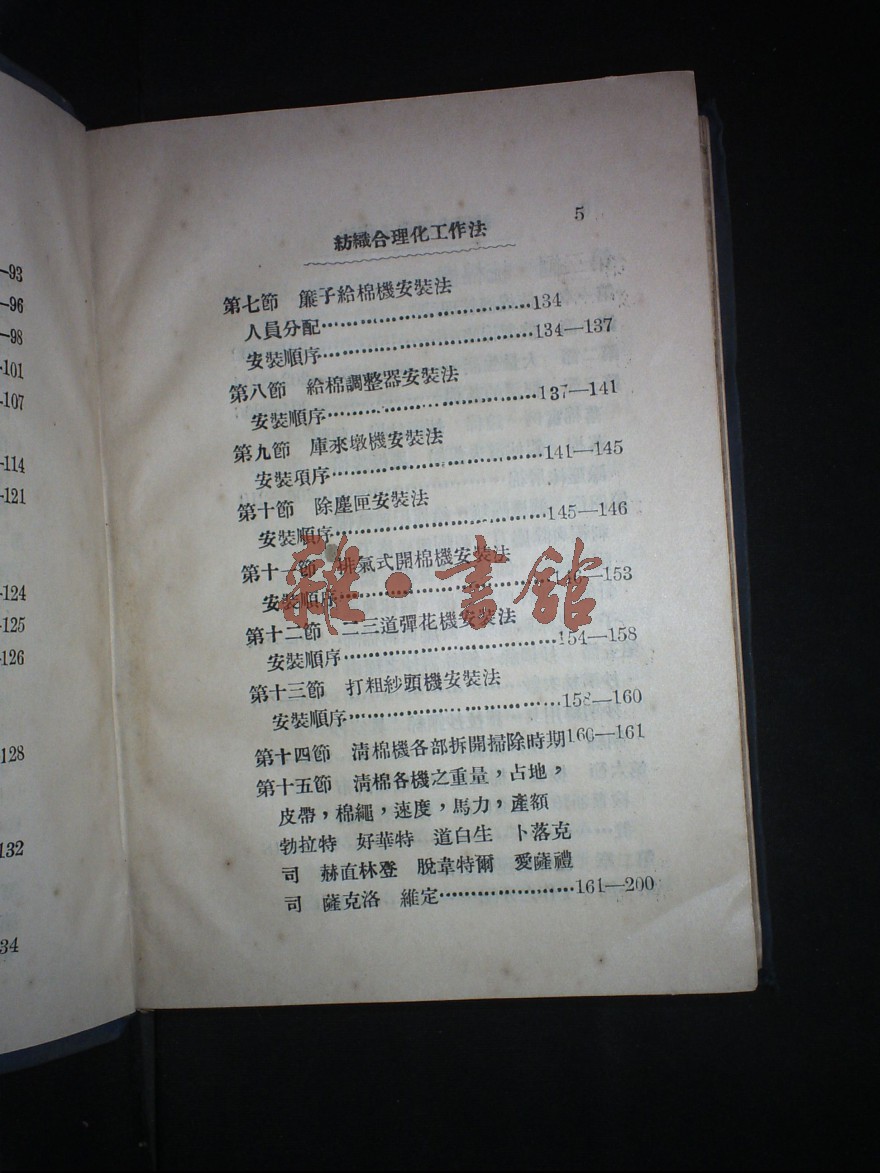 —93
—96
—98
—101
—107
—114
—121
—124
—125
—126
128
132
34
5
紡織合理化工作法
第七節 簾子給棉機安裝法
人員分配…………………………134
安裝順序…………………………134—137
第八節 給棉調整器安裝法
安裝順序…………………………137—141
第九節 庫來墩機安裝法
安裝項序…………………………141—145
第十節 除塵匣安裝法
安裝順序…………………………145—146
第十一節 排氣式開棉機安裝法
安裝順序…………………………146—153
第十二節 二三道彈花機安裝法
安裝順序…………………………154—158
第十三節 打粗紗頭機安裝法
安裝順序…………………………158—160
第十四節 淸棉機各部拆開掃除時期160—161
第十五節 淸棉各機之重量,占地,
皮帶,棉繩,速度,馬力,產額
勃拉特 好華特 道白生 卜落克
司 赫直林登 脫韋特爾 愛薩禮
司 薩克洛 維定………………161—200
雜·書館